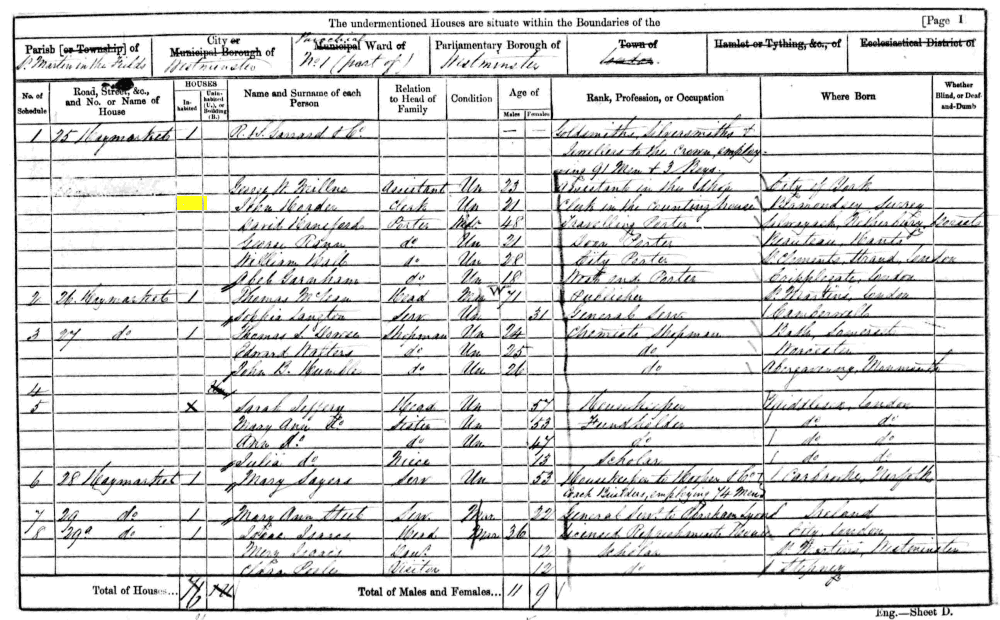 The undermentioned Houses are situate within the Boundaries of the [Page 1
Parish [or Township] of City or Municipal Borough of Municipal Ward of Parliamentary Borough of Town of Hamlet or Tything, &c., of Ecclesiastical District of
St Martin in the Fields Westminster Parochial No 1 (part of) Westminster
No. of Schedule Road, Street, &c., and No. or Name of House HOUSES Inhabited Uninhabited (U.), or Building (B.) Name and Surname of each Person Relation to Head of Family Condition Age of Males Females Rank, Profession, or Occupation Where Born Whether Blind, or Deaf-and-Dumb
1 25 Haymarket 1 R. & S. Garrard & Co — — Goldsmiths, Silversmiths &
Jewellers to the Crown, employ-
ing 91 Men & 3 Boys
George W. Assistant Un 23 Assistant in the Shop City of York
John Clerk Un 21 Clerk in the Counting house Bermondsey Surrey
David Hansford Porter 48 Travelling Porter Netherbury, Dorset
George do Un 21 Door Porter Hants
William do Un 28 City Porter St Clements, Strand, London
Garnham do Un 18 West end Porter Cripplegate, London
2 26 Haymarket 1 Thomas McLean Head W 71 Publisher St Martins, London
Sophia Langton Serv Un 31 General Serv Camberwell
3 27 do 1 Thomas S. Shopman Un 24 Chemists Shopman Bath, Somerset
Edward Walters do Un 25 do Worcester
John B. Humble do Un 26 do Abergavenny, Monmouth
4
5 x Sarah Jeffery Head Un 57 Housekeeper Middlesex, London
Mary Ann Do Sister Un 53 Fundholder do do
Ann Do do Un 47 do do do
Julia do Niece 15 Scholar do do
6 28 Haymarket 1 Mary Sayers Serv Un 53 Housekeeper to Hooper & Co
Coach Builders, employing 74 Men Carbrooke, Norfolk
7 29 do 1 Mary Ann Serv. Mar 22 General Serv. to Abraham Lyons Ireland
8 29a do 1 Isaac Isaacs Head Mar 36 Licensed Refreshment House City London
Mary Isaacs Daur 12 Scholar St Martins, Westminster
Clara Visitor 12 do Stepney
Total of Houses... 6 Total of Males and Females... 11 9
Eng.—Sheet D.